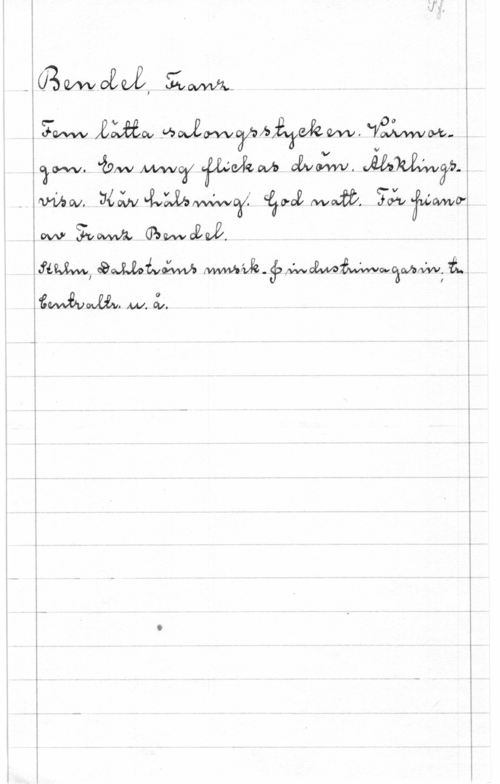 Pf.
Bendel, Franz
Fem lätta salongsstycken. Vårmor-
gon. En ung flickas dröm. Älsklings-
visa. Kär hälsning. God natt. För piano
av Franz Bendel.
Sthlm, Dahlströms musik- industrimagasin, tr.
Centraltr. u. å.